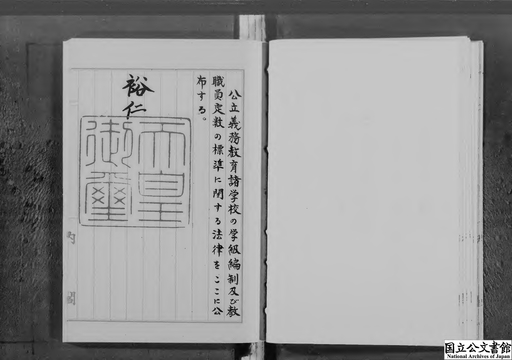 公立義務教育諸学校の学級編制及び教
職員定数の標準に関する法律をここに公
布する。
裕仁
天皇
御璽
内閣
国立公文書館
National Archives of Japan